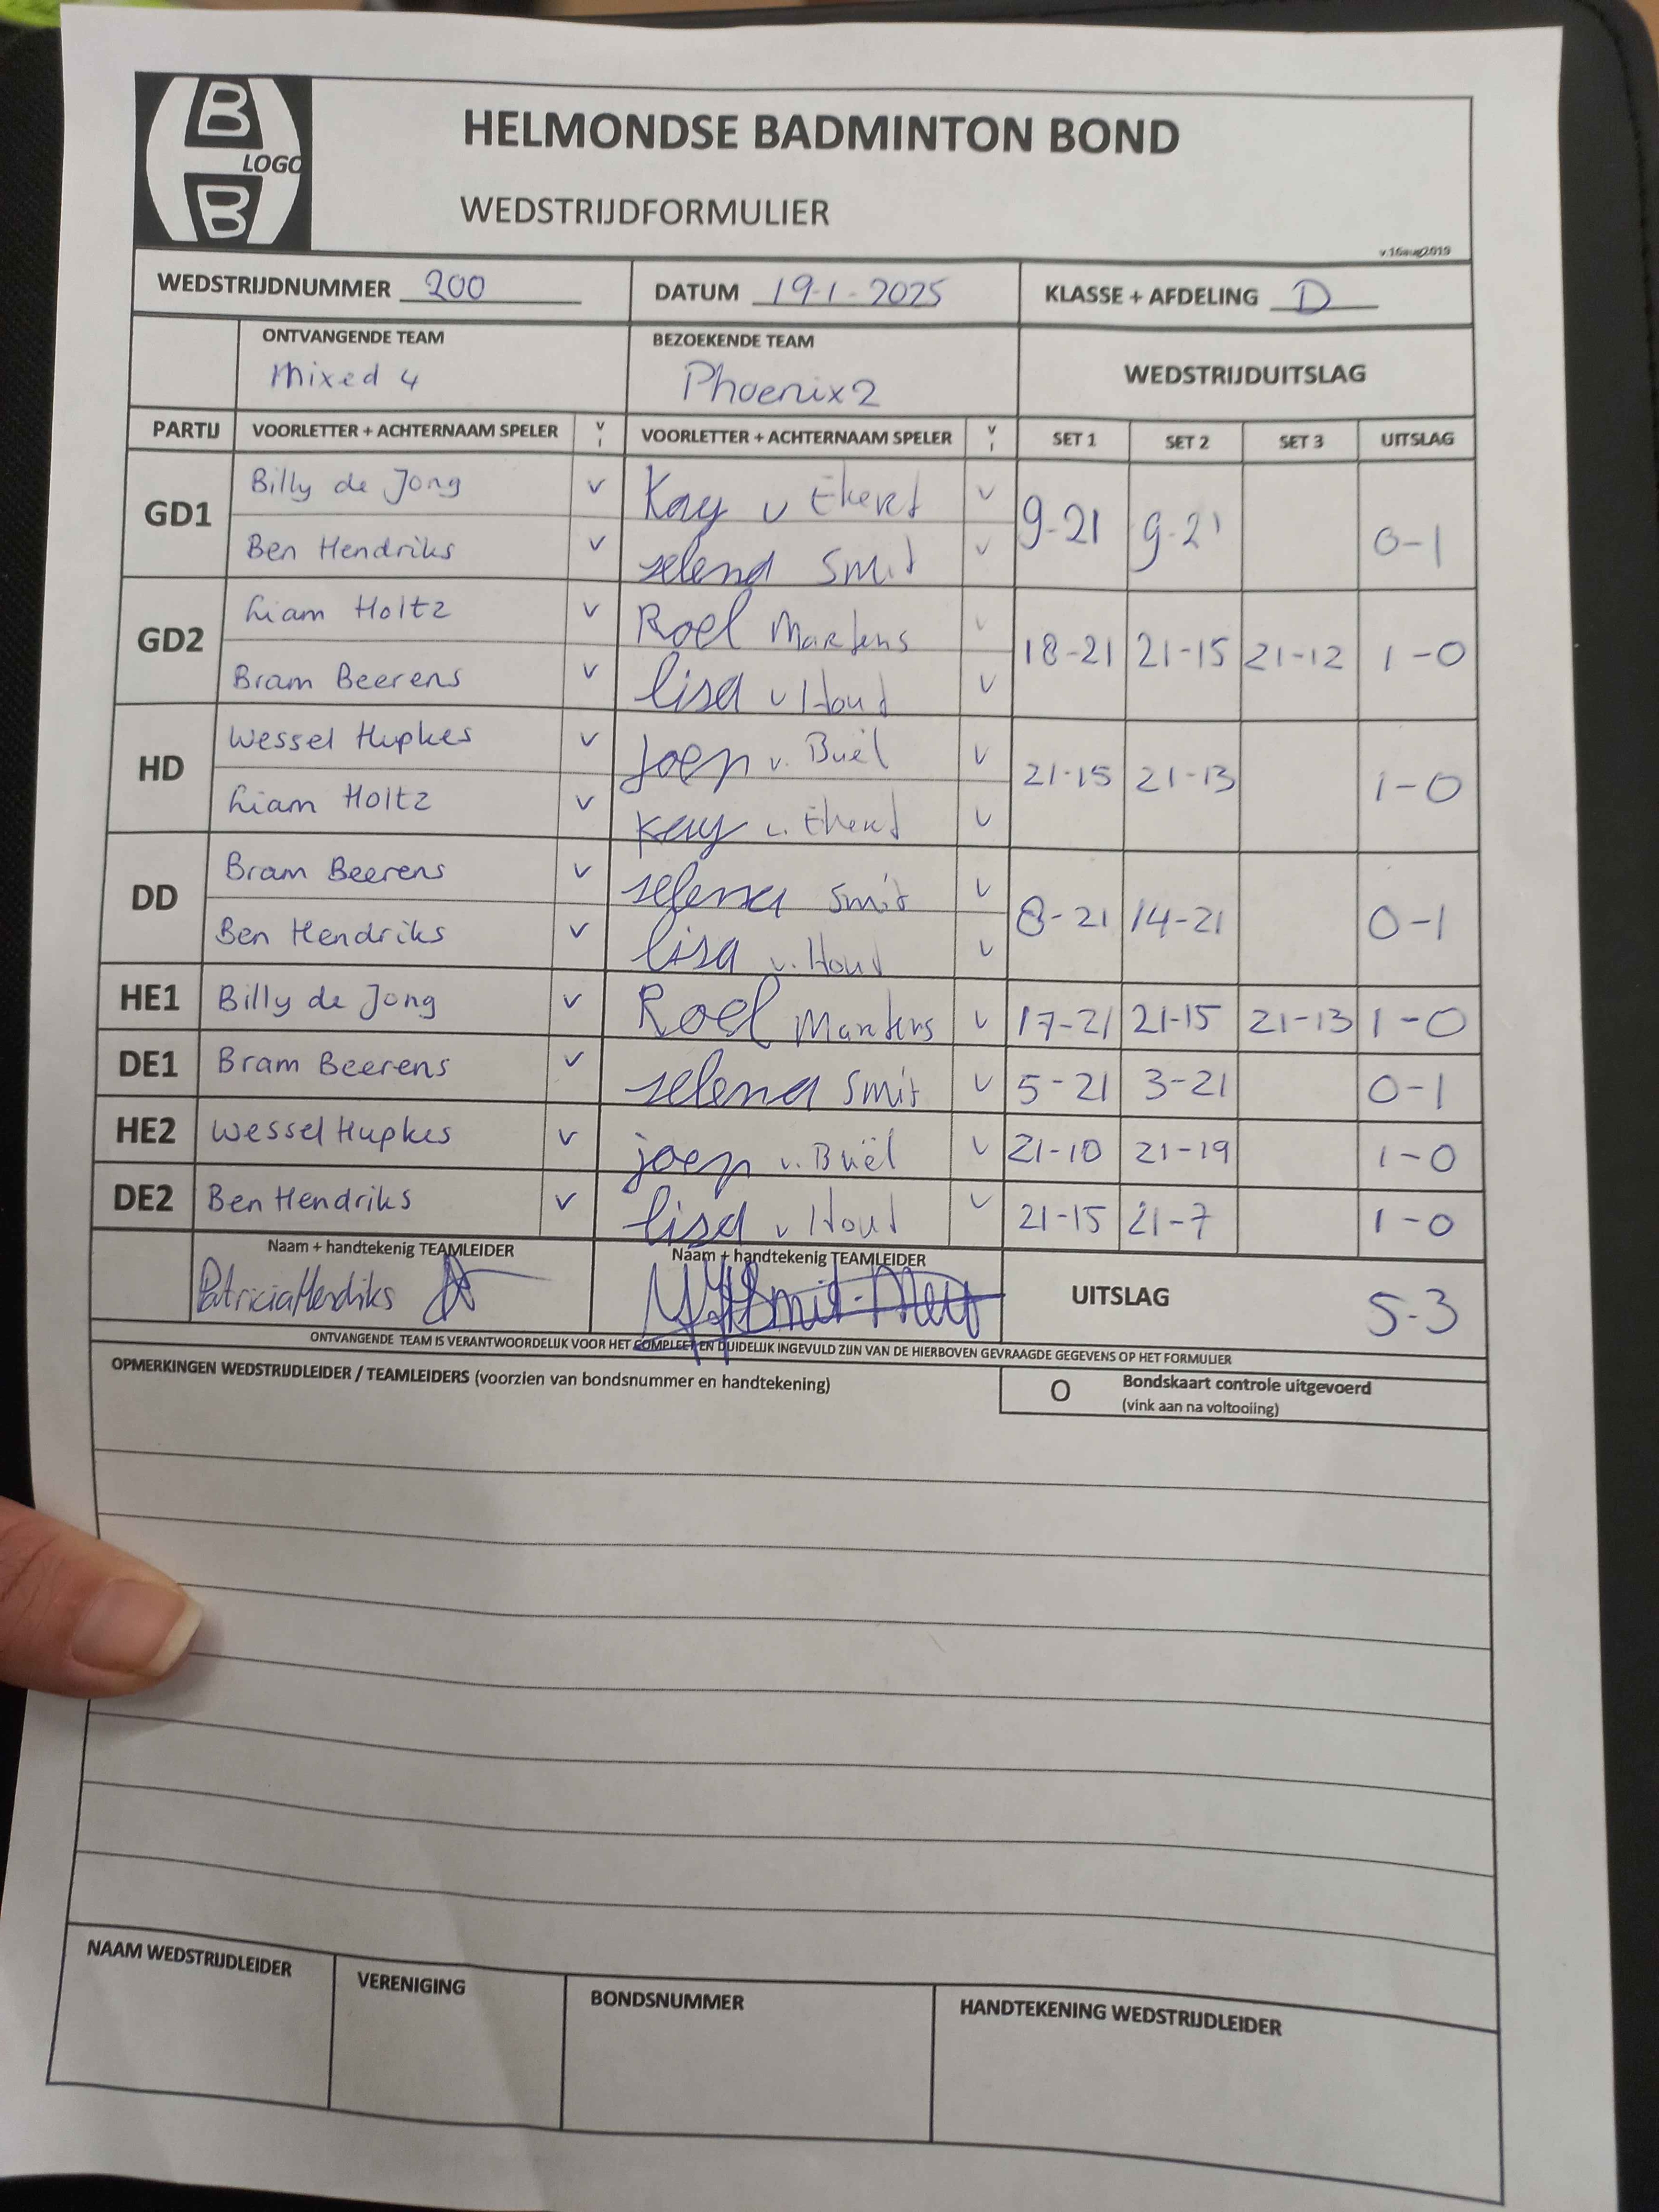 B
LOGO
B
HELMONDSE BADMINTON BOND
WEDSTRIJDFORMULIER
v.16aug2019
WEDSTRIJDNUMMER 200 DATUM 19-1-2025 KLASSE + AFDELING D
ONTVANGENDE TEAM BEZOEKENDE TEAM WEDSTRIJDUITSLAG
Mixed 4 Phoenix 2
PARTIJ VOORLETTER + ACHTERNAAM SPELER V I VOORLETTER + ACHTERNAAM SPELER V I SET 1 SET 2 SET 3 UITSLAG
GD1 Billy de Jong v Kay v Ekert v 9-21 9-21 0-1
Ben Hendriks v selena Smit v
GD2 Liam Holtz v Roel Martens v 18-21 21-15 21-12 1-0
Bram Beerens v lisa v Hout v
HD Wessel Hupkes v Joep v. Buël v 21-15 21-13 1-0
Liam Holtz v Kay v. Ekert v
DD Bram Beerens v selena Smit v 8-21 14-21 0-1
Ben Hendriks v lisa v. Hout v
HE1 Billy de Jong v Roel Martens v 17-21 21-15 21-13 1-0
DE1 Bram Beerens v selena Smit v 5-21 3-21 0-1
HE2 Wessel Hupkes v joep v. Buël v 21-10 21-19 1-0
DE2 Ben Hendriks v lisa v Hout v 21-15 21-7 1-0
Naam + handtekenig TEAMLEIDER Naam + handtekenig TEAMLEIDER UITSLAG 5-3
Patricia Hendriks
ONTVANGENDE TEAM IS VERANTWOORDELIJK VOOR HET COMPLEET EN DUIDELIJK INGEVULD ZIJN VAN DE HIERBOVEN GEVRAAGDE GEGEVENS OP HET FORMULIER
OPMERKINGEN WEDSTRIJDLEIDER / TEAMLEIDERS (voorzien van bondsnummer en handtekening)
O Bondskaart controle uitgevoerd
(vink aan na voltooiing)
NAAM WEDSTRIJDLEIDER VERENIGING BONDSNUMMER HANDTEKENING WEDSTRIJDLEIDER